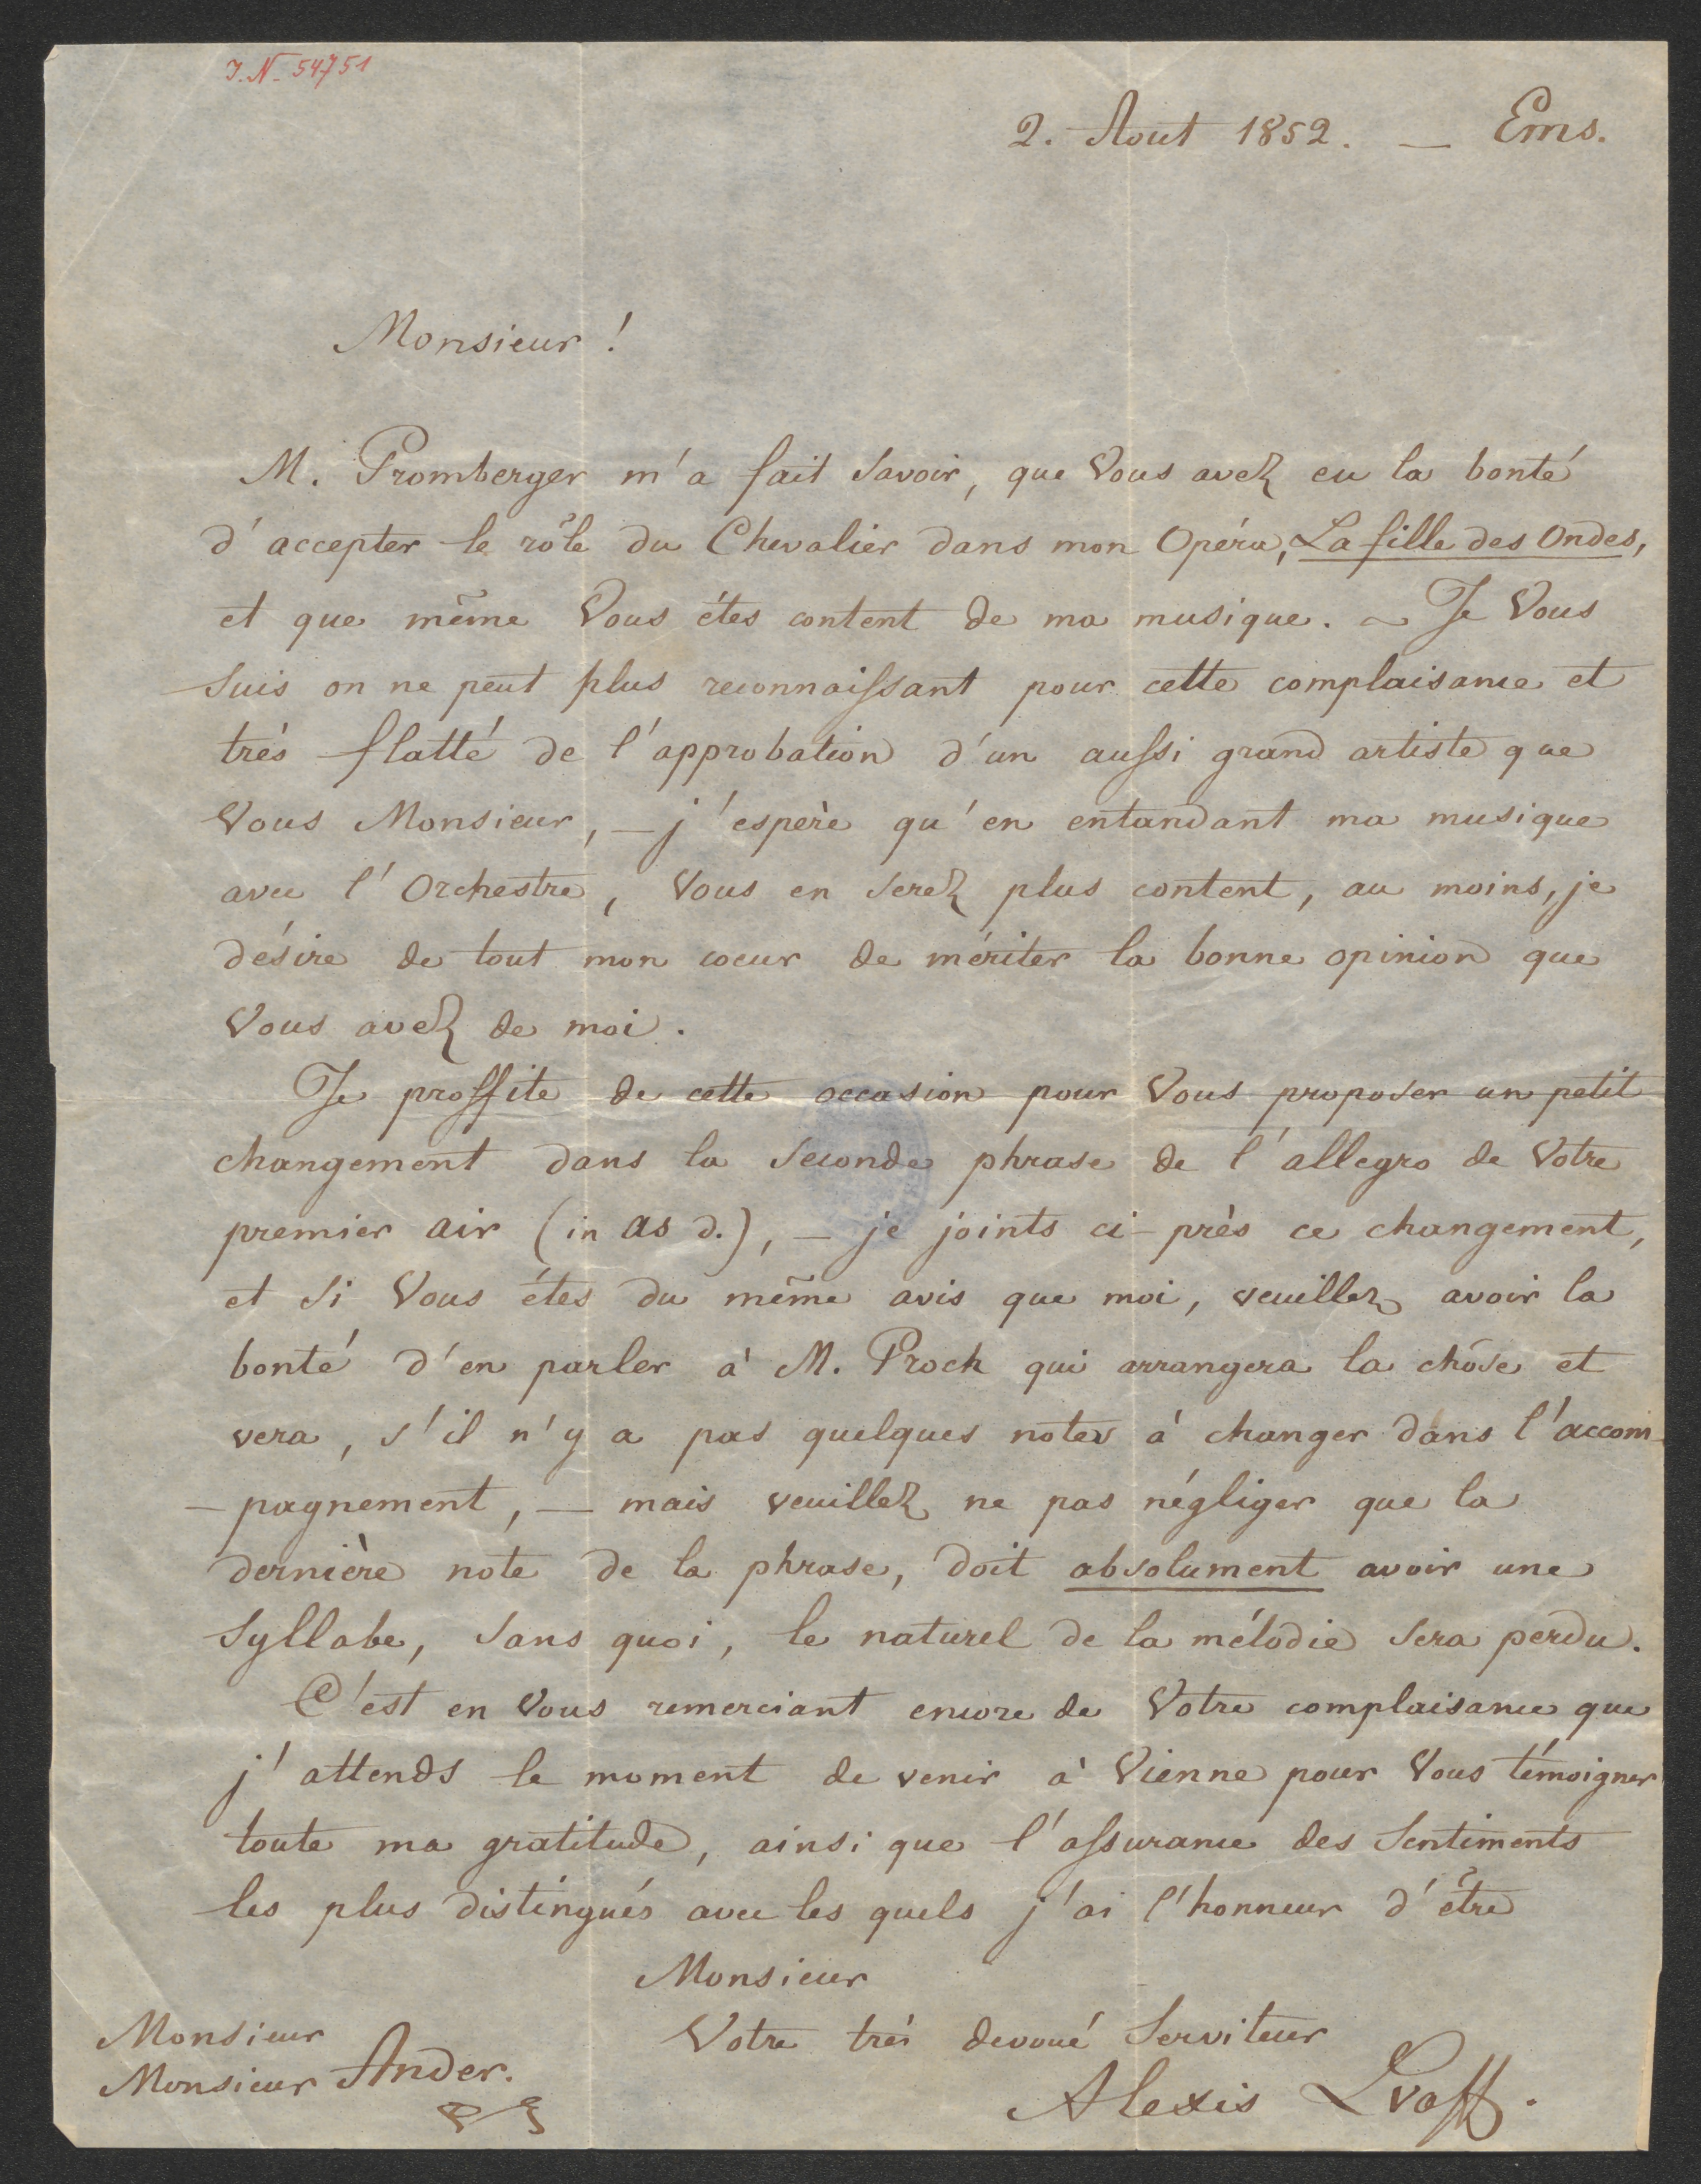 J. N. 54751
2. Aout 1852. — Ems.
Monsieur !
M. Promberger m'a fait savoir, que Vous avez eu la bonté
d'accepter le rôle du Chevalier dans mon Opéra, La fille des Ondes,
et que même Vous étes content de ma musique. ~ Je Vous
suis on ne peut plus reconnaissant pour cette complaisance et
trés flatté de l'approbation d'un aussi grand artiste que
Vous Monsieur, — j'espère qu'en entandant ma musique
avec l'Orchestre, Vous en serez plus content, au moins, je
désire de tout mon coeur de mériter la bonne opinion que
Vous avez de moi.
Je proffite de cette occasion pour Vous proposer un petit
changement dans la seconde phrase de l'allegro de Votre
premier air (in as d.), — je joints ci-près ce changement,
et si Vous étes du même avis que moi, veuillez avoir la
bonté d'en parler à M. Proch qui arrangera la chôse et
vera, s'il n'y a pas quelques notes à changer dans l'accom-
-pagnement, — mais veuillez ne pas négliger que la
dernière note de la phrase, doit absolument avoir une
syllabe, sans quoi, le naturel de la mélodie sera perdu.
C'est en Vous remerciant encore de Votre complaisance que
j'attends le moment de venir à Vienne pour Vous témoigner
toute ma gratitude, ainsi que l'assurance des sentiments
les plus distingués avec les quels j'ai l'honneur d'être
Monsieur
Votre trés devoué Serviteur
Alexis Lvoff.
Monsieur
Monsieur Ander.